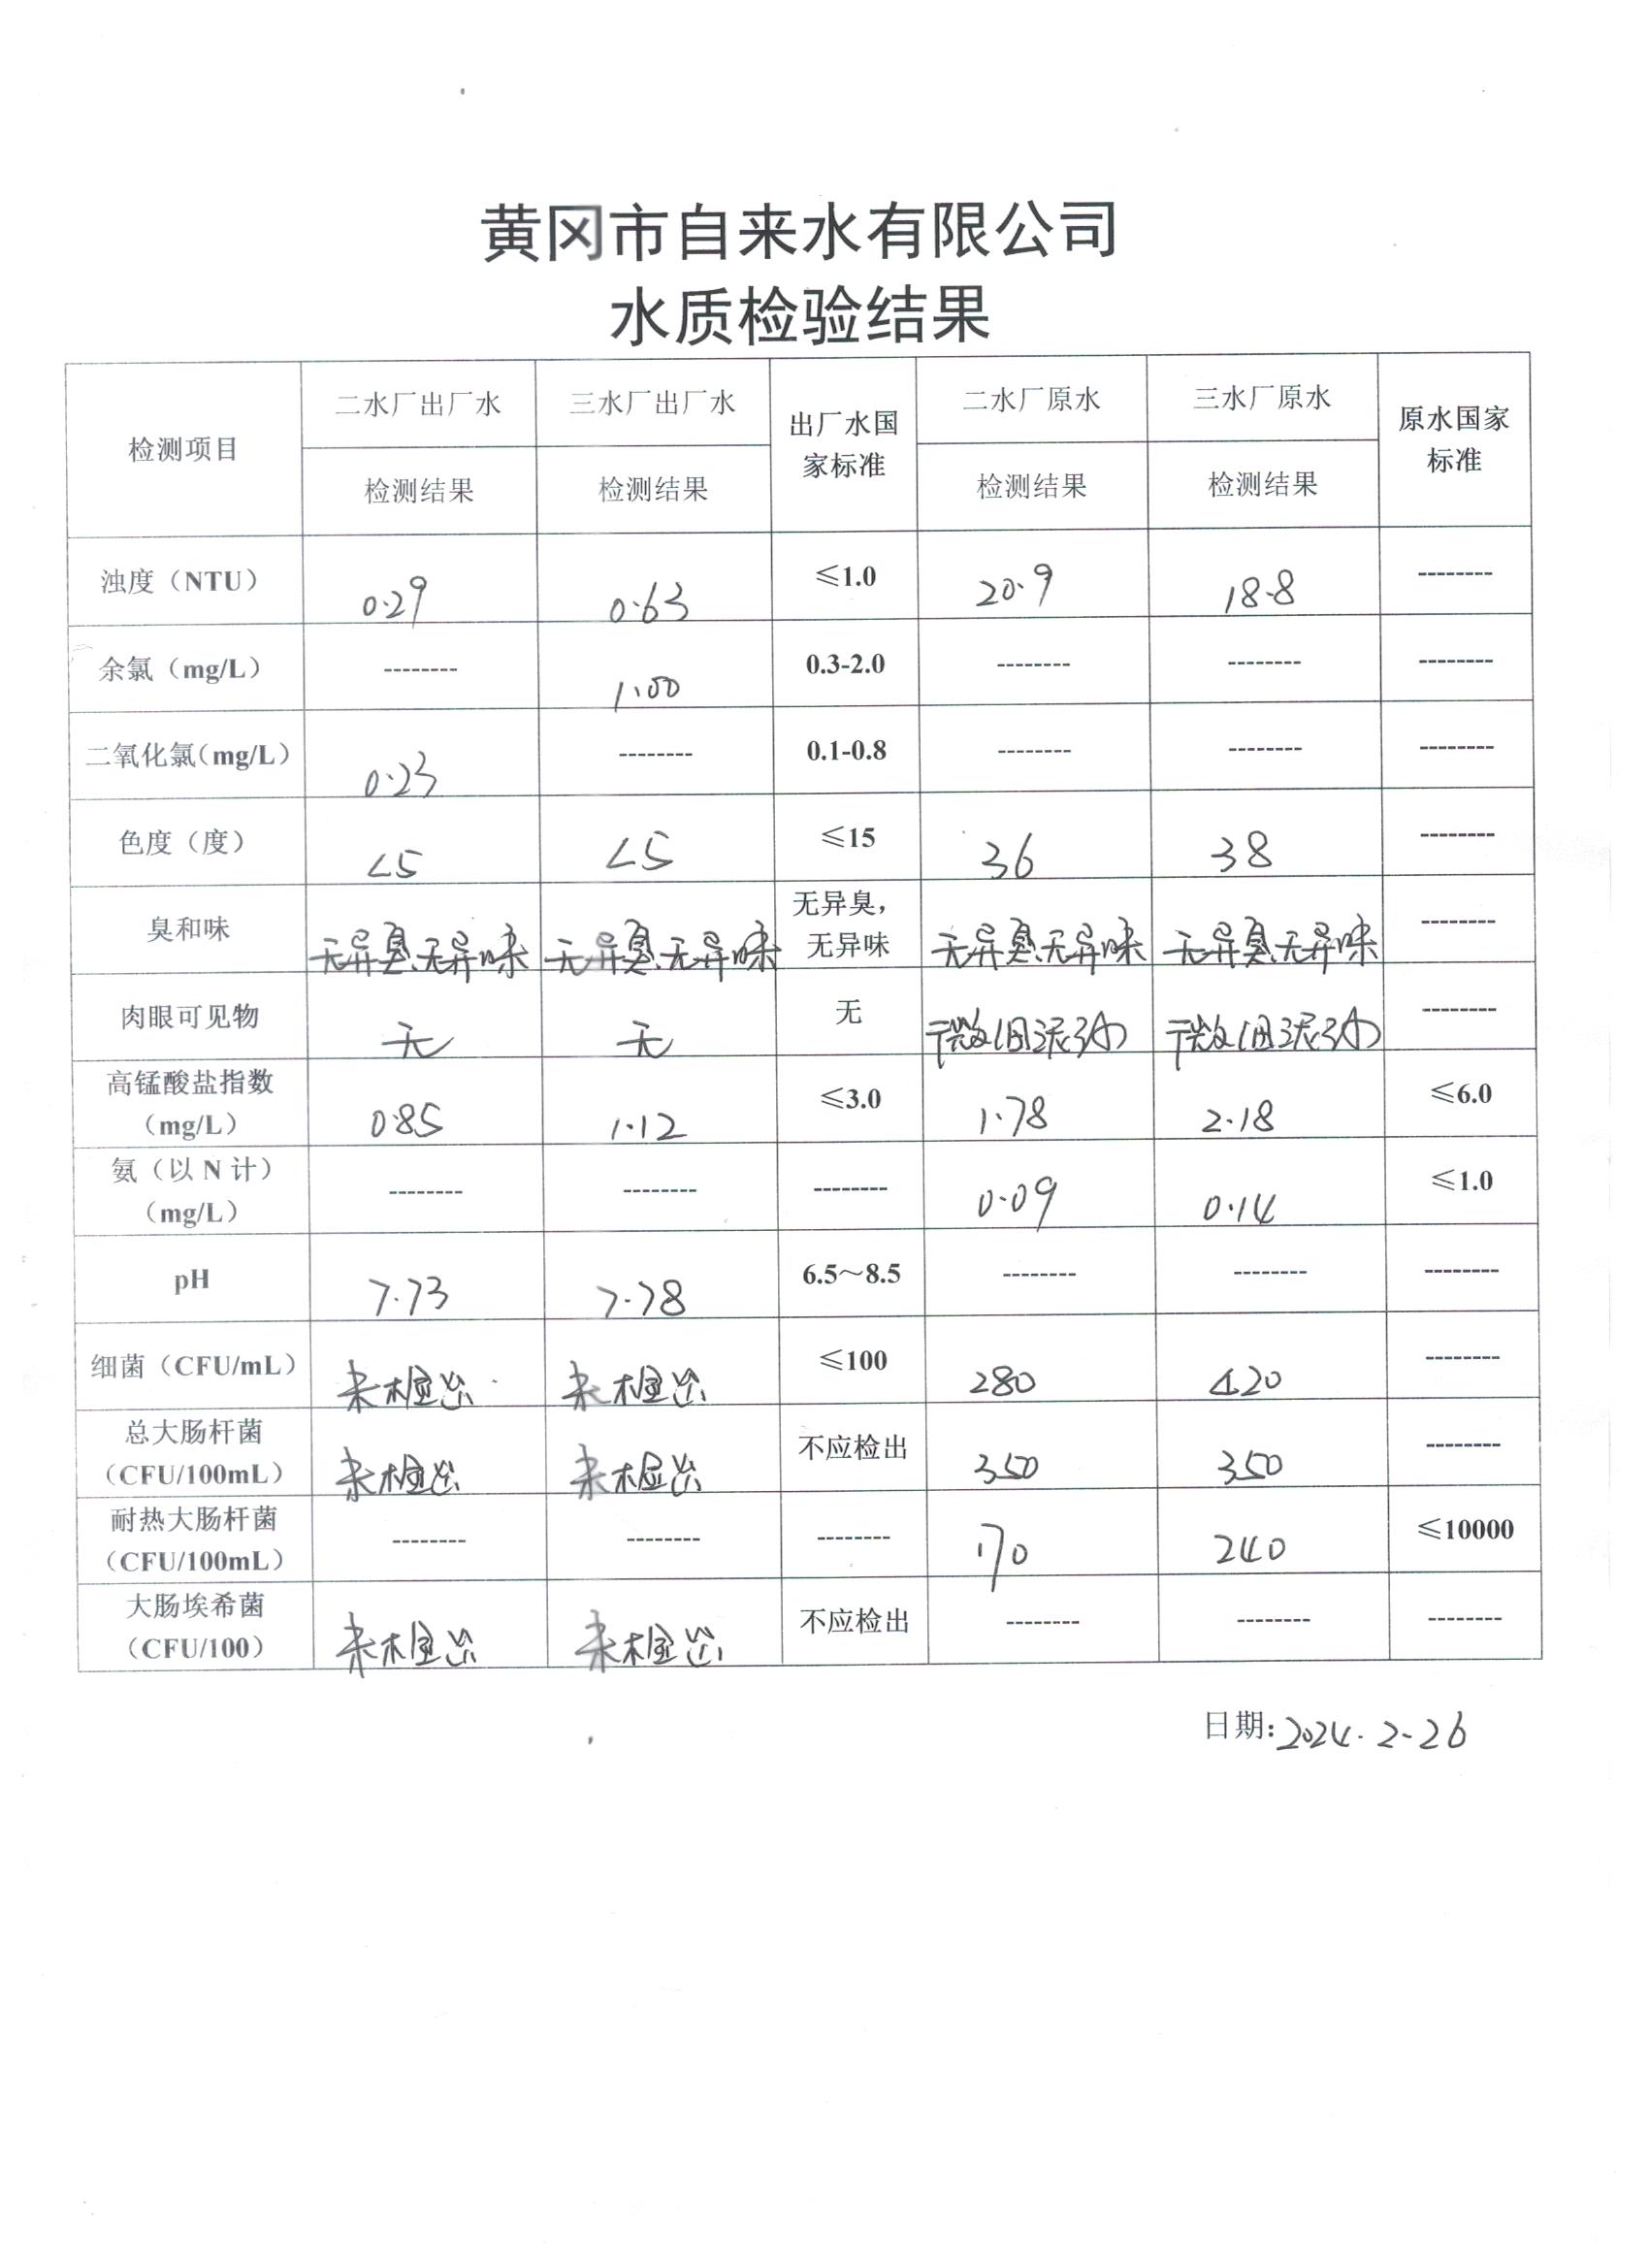 黄冈市自来水有限公司
水质检验结果
检测项目 二水厂出厂水 三水厂出厂水 出厂水国家标准 二水厂原水 三水厂原水 原水国家标准
检测结果 检测结果 检测结果 检测结果
浊度（NTU） 0.29 0.63 ≤1.0 20.9 18.8 --------
余氯（mg/L） -------- 1.00 0.3-2.0 -------- -------- --------
二氧化氯(mg/L) 0.23 -------- 0.1-0.8 -------- -------- --------
色度（度） <5 <5 ≤15 36 38 --------
臭和味 无异臭、无异味 无异臭、无异味 无异臭，无异味 无异臭、无异味 无异臭、无异味 --------
肉眼可见物 无 无 无 微细泥沙 微细泥沙 --------
高锰酸盐指数（mg/L） 0.85 1.12 ≤3.0 1.78 2.18 ≤6.0
氨（以 N 计）（mg/L） -------- -------- -------- 0.09 0.14 ≤1.0
pH 7.73 7.78 6.5～8.5 -------- -------- --------
细菌（CFU/mL） 未检出 未检出 ≤100 280 420 --------
总大肠杆菌（CFU/100mL） 未检出 未检出 不应检出 350 350 --------
耐热大肠杆菌（CFU/100mL） -------- -------- -------- 170 240 ≤10000
大肠埃希菌（CFU/100） 未检出 未检出 不应检出 -------- -------- --------
日期: 2024.2-26